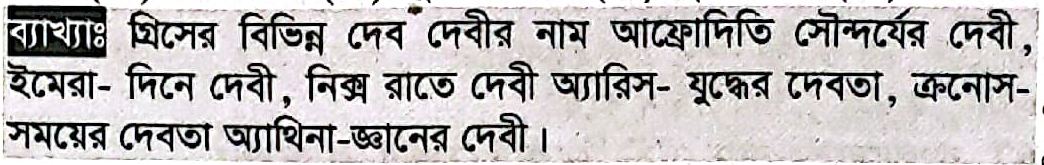 ব্যাখ্যাঃ গ্রিসের বিভিন্ন দেব দেবীর নাম আফ্রোদিতি সৌন্দর্যের দেবী,
ইমেরা- দিনে দেবী, নিক্স রাতে দেবী অ্যারিস- যুদ্ধের দেবতা, ক্রনোস-
সময়ের দেবতা অ্যাথিনা-জ্ঞানের দেবী।